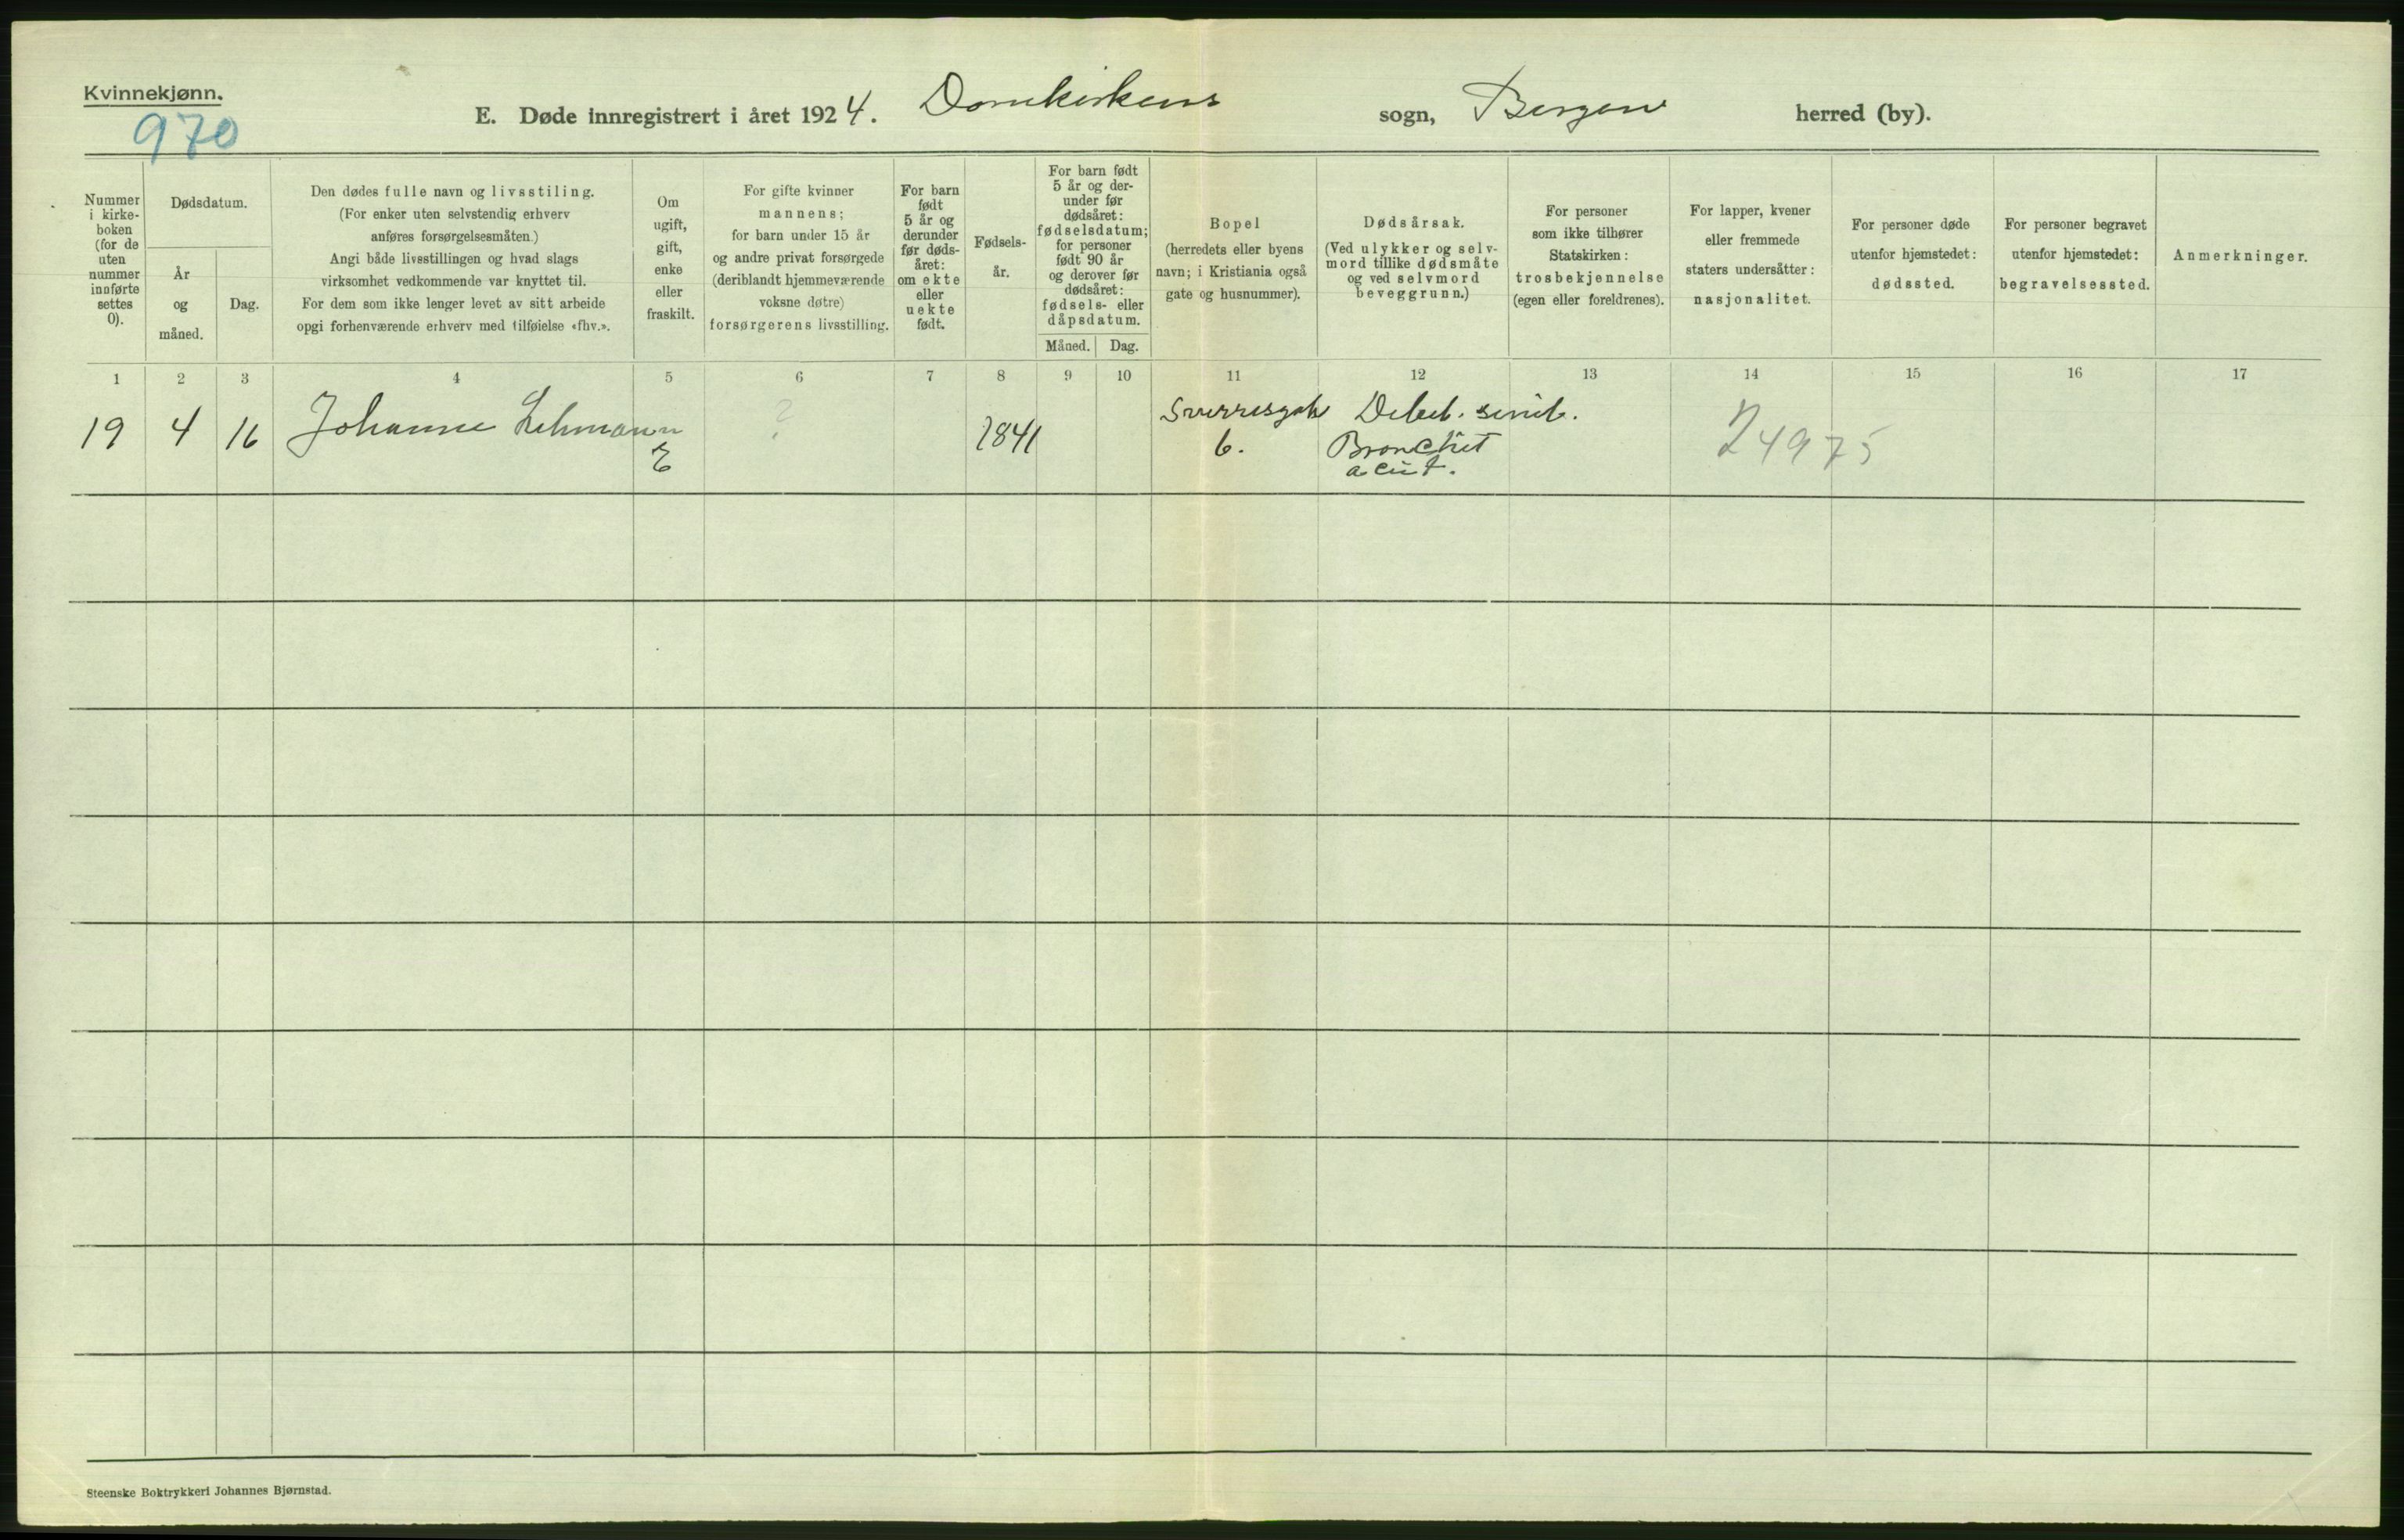 Kvinnekjønn.
970
E. Døde innregistrert i året 1924. Domkirkens sogn, Bergen herred (by).
Nummer
i kirke-
boken
(for de
uten
nummer
innførte
settes
0).
Dødsdatum.
År
og
måned.
Dag.
Den dødes fulle navn og livsstiling.
(For enker uten selvstendig erhverv
anføres forsørgelsesmåten.)
Angi både livsstillingen og hvad slags
virksomhet vedkommende var knyttet til.
For dem som ikke lenger levet av sitt arbeide
opgi forhenværende erhverv med tilføielse «fhv.».
Om
ugift,
gift,
enke
eller
fraskilt.
For gifte kvinner
mannens;
for barn under 15 år
og andre privat forsørgede
(deriblandt hjemmeværende
voksne døtre)
forsørgerens livsstilling.
For barn
født
5 år og
derunder
før døds-
året:
om ekte
eller
uekte
født.
Fødsels-
år.
For barn født
5 år og der-
under før
dødsåret:
fødselsdatum;
for personer
født 90 år
og derover før
dødsåret:
fødsels- eller
dåpsdatum.
Måned. Dag.
Bopel
(herredets eller byens
navn; i Kristiania også
gate og husnummer).
Dødsårsak.
(Ved ulykker og selv-
mord tillike dødsmåte
og ved selvmord
beveggrunn.)
For personer
som ikke tilhører
Statskirken:
trosbekjennelse
(egen eller foreldrenes).
For lapper, kvener
eller fremmede
staters undersåtter:
nasjonalitet.
For personer døde
utenfor hjemstedet:
dødssted.
For personer begravet
utenfor hjemstedet:
begravelsessted.
Anmerkninger.
1 2 3 4 5 6 7 8 9 10 11 12 13 14 15 16 17
19 4 16 Johanne Lehmann E ? 1841
Sverresgate
6.
Debil. senil.
Bronchit
acut.
24975
Steenske Boktrykkeri Johannes Bjørnstad.